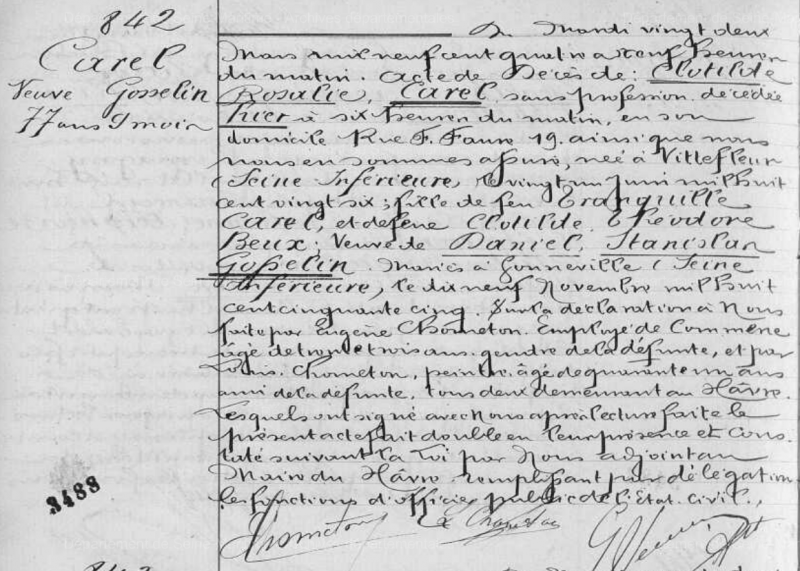 842
Carel
Veuve Gosselin
77 ans 9 mois
Du Mardi vingt deux
Mars mil neuf cent quatre à neuf heures
du matin. Acte de Décès de: Clotilde
Rosalie, Carel, sans profession décédée
hier à six heures du matin, en son
domicile Rue F. Faure 19. ainsi que nous
nous en sommes assuré, née à Villefleur
(Seine Inférieure) le vingt un juin mil huit
cent vingt six; fille de feu Tranquille
Carel, et de feue Clotilde Théodore
Beux; Veuve de Daniel, Stanislas
Gosselin. Mariés à Gonneville (Seine
Inférieure) le dix neuf Novembre mil huit
cent cinquante cinq. Sur la déclaration à Nous
faite par Eugène Chometon Employé de Commerce
âgé de trente trois ans. gendre de la défunte, et par
Louis, Chometon, peintre, âgé de quarante un ans
ami de la défunte, tous deux demeurant au Hâvre.
Lesquels ont signé avec Nous après lecture faite le
présent acte fait double en leur présence et Cons
taté suivant la Loi par Nous adjoint au
Maire du Hâvre remplissant par délégation
les fonctions d'officier public de l'Etat. Civil.
3488
Chometon